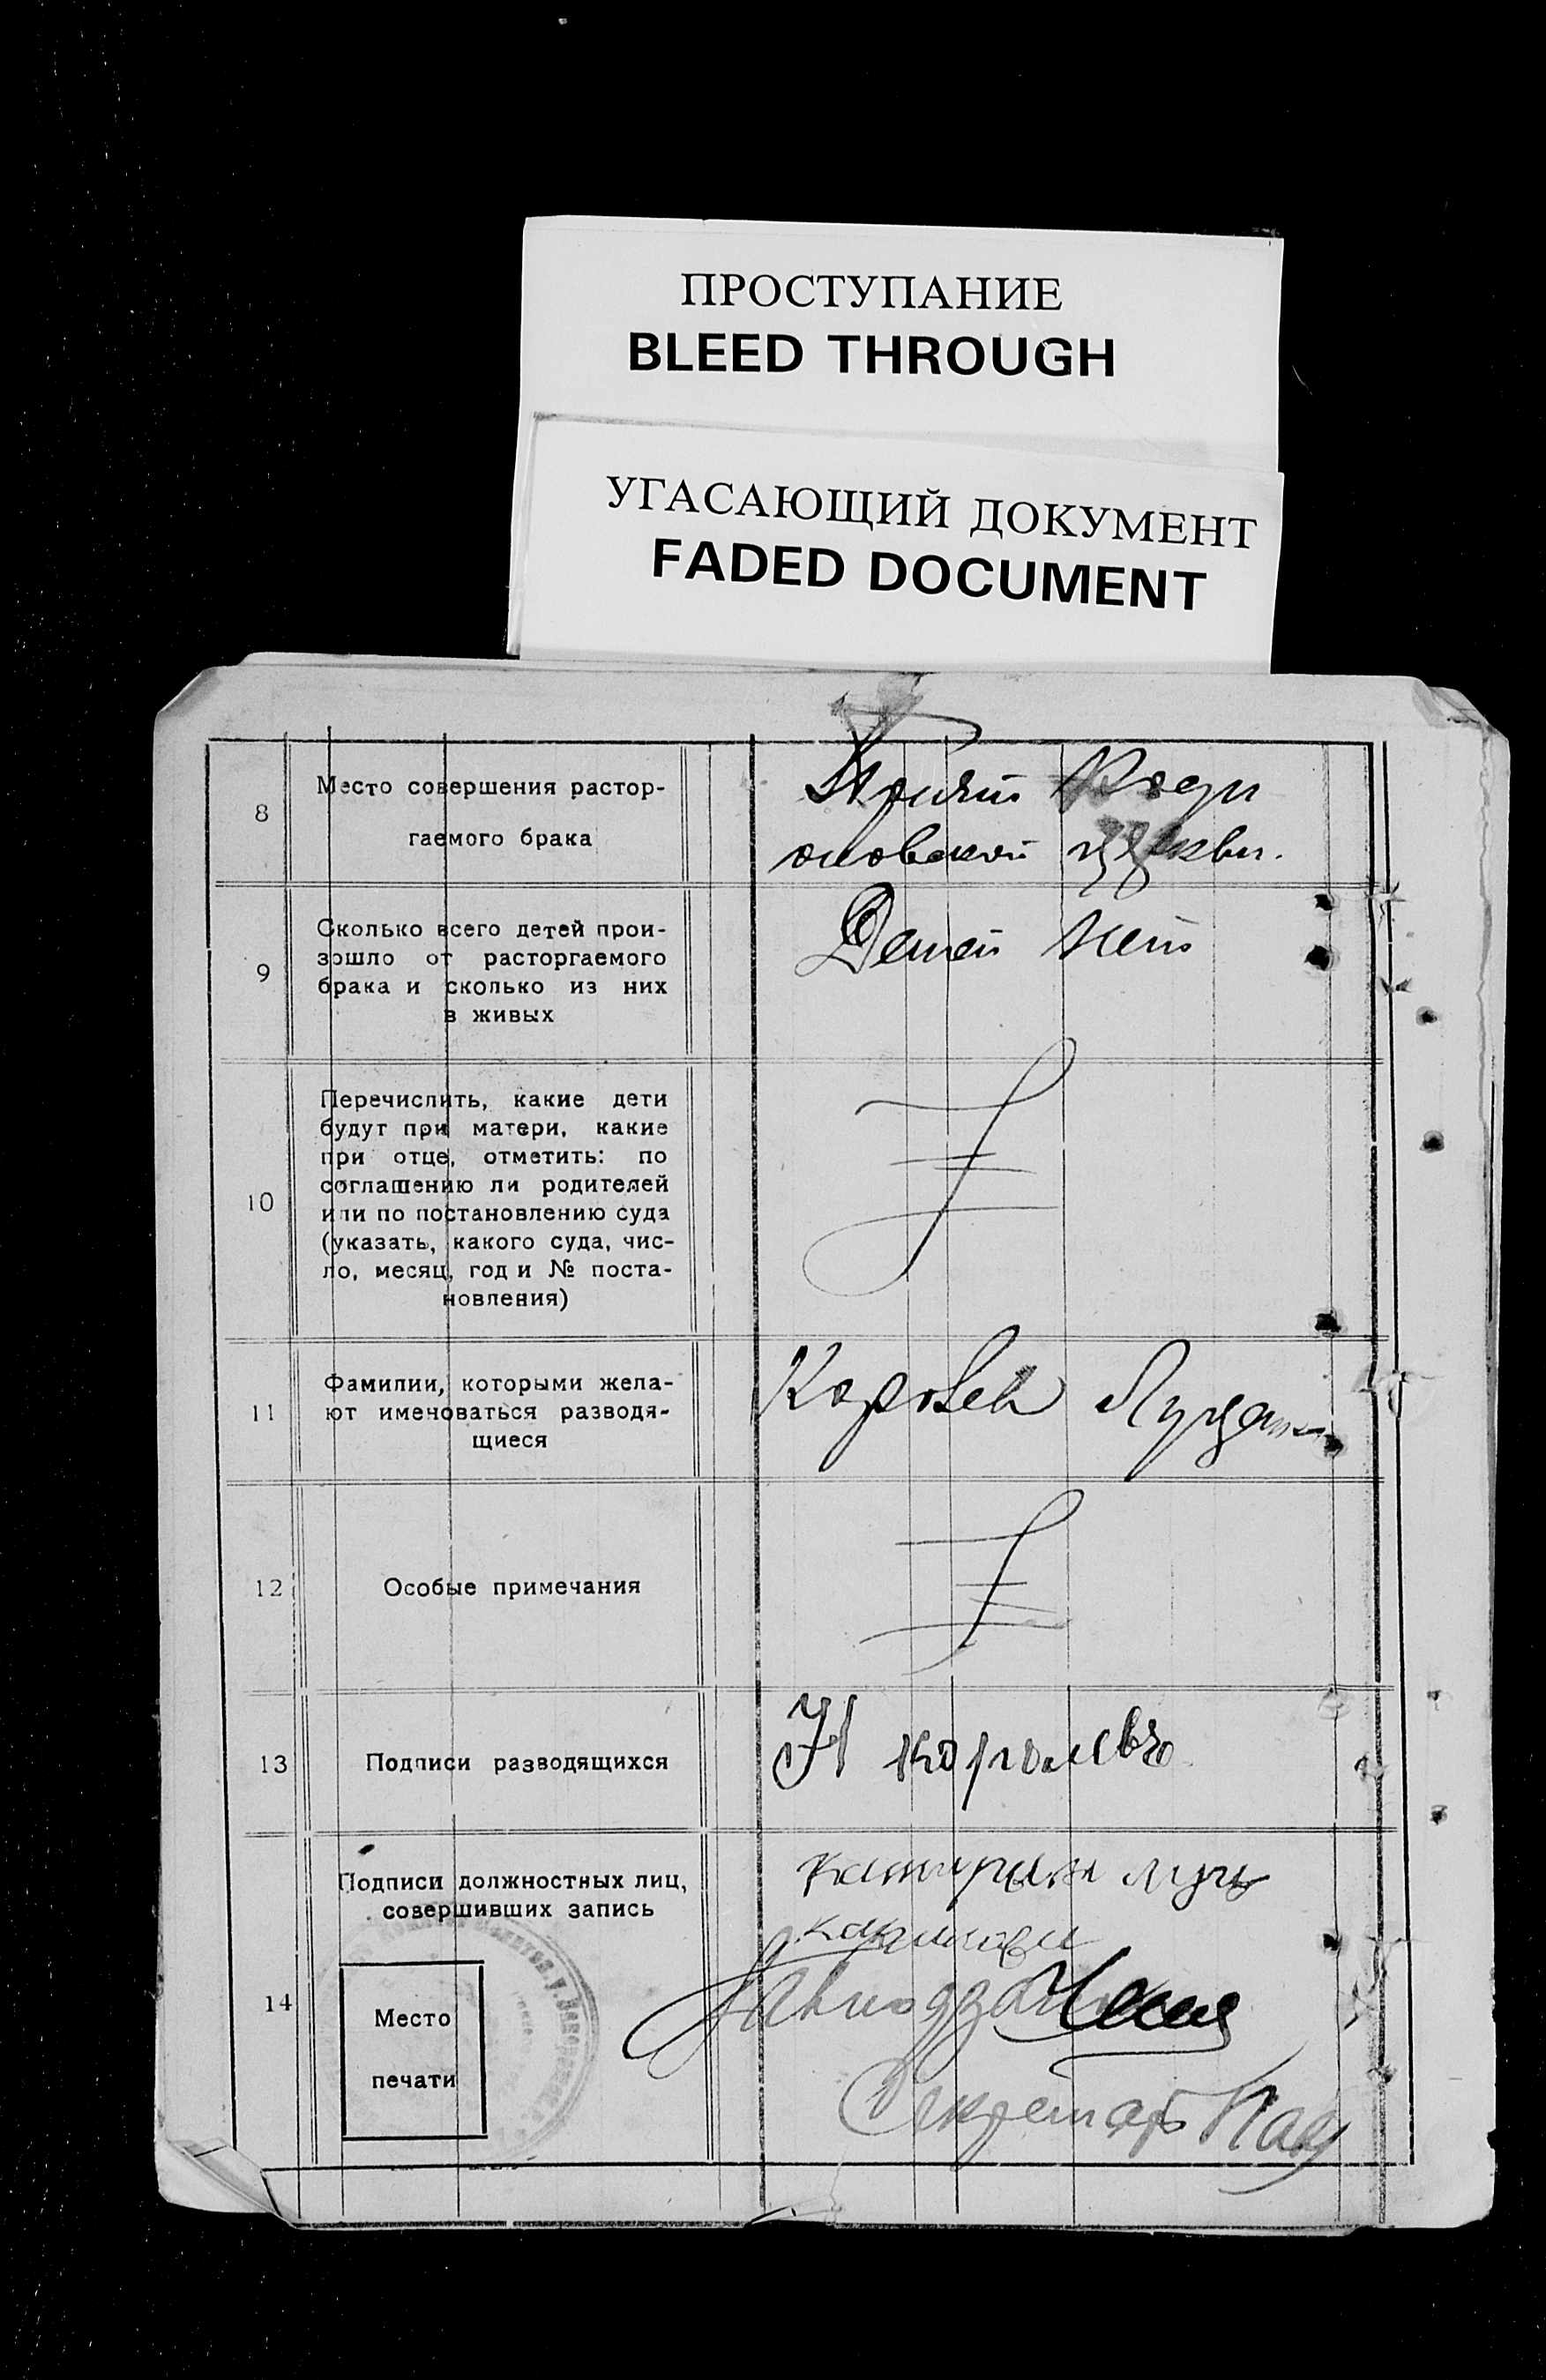 ПРОСТУПАНИЕ
BLEED THROUGH
УГАСАЮЩИЙ ДОКУМЕНТ
FADED DOCUMENT
8
Место совершения растор-
гаемого брака
церкви.
9
Сколько всего детей прои-
зошло от расторгаемого
брака и сколько из них
в живых
Детей нет
10
Перечислить, какие дети
будут при матери, какие
при отце, отметить: по
соглашению ли родителей
или по постановлению суда
(указать, какого суда, чис-
ло, месяц, год и № поста-
новления)
11
Фамилии, которыми жела-
ют именоваться разводя-
щиеся
12
Особые примечания
13
Подписи разводящихся
14
Подписи должностных лиц,
совершивших запись
Место
печати
Секретарь